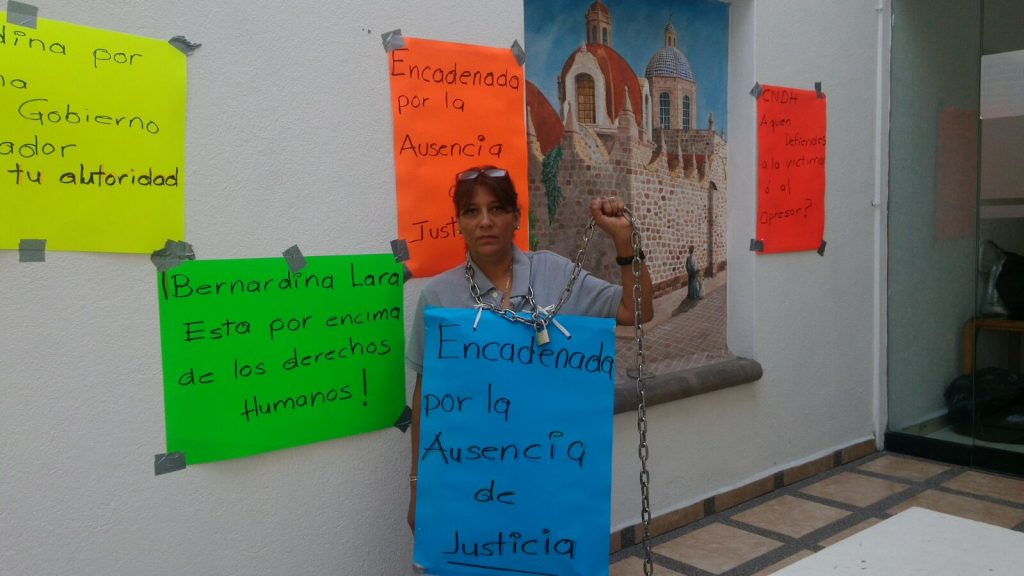 dina por
na
Gobierno
ador
tu autoridad
¡Bernardina Lara
Esta por encima
de los derechos
Humanos!
Encadenada
por la
Ausencia
Just
Encadenada
por la
Ausencia
de
Justicia
CNDH
Aquen
Defiendes
a la victima
ó al
Opresor?